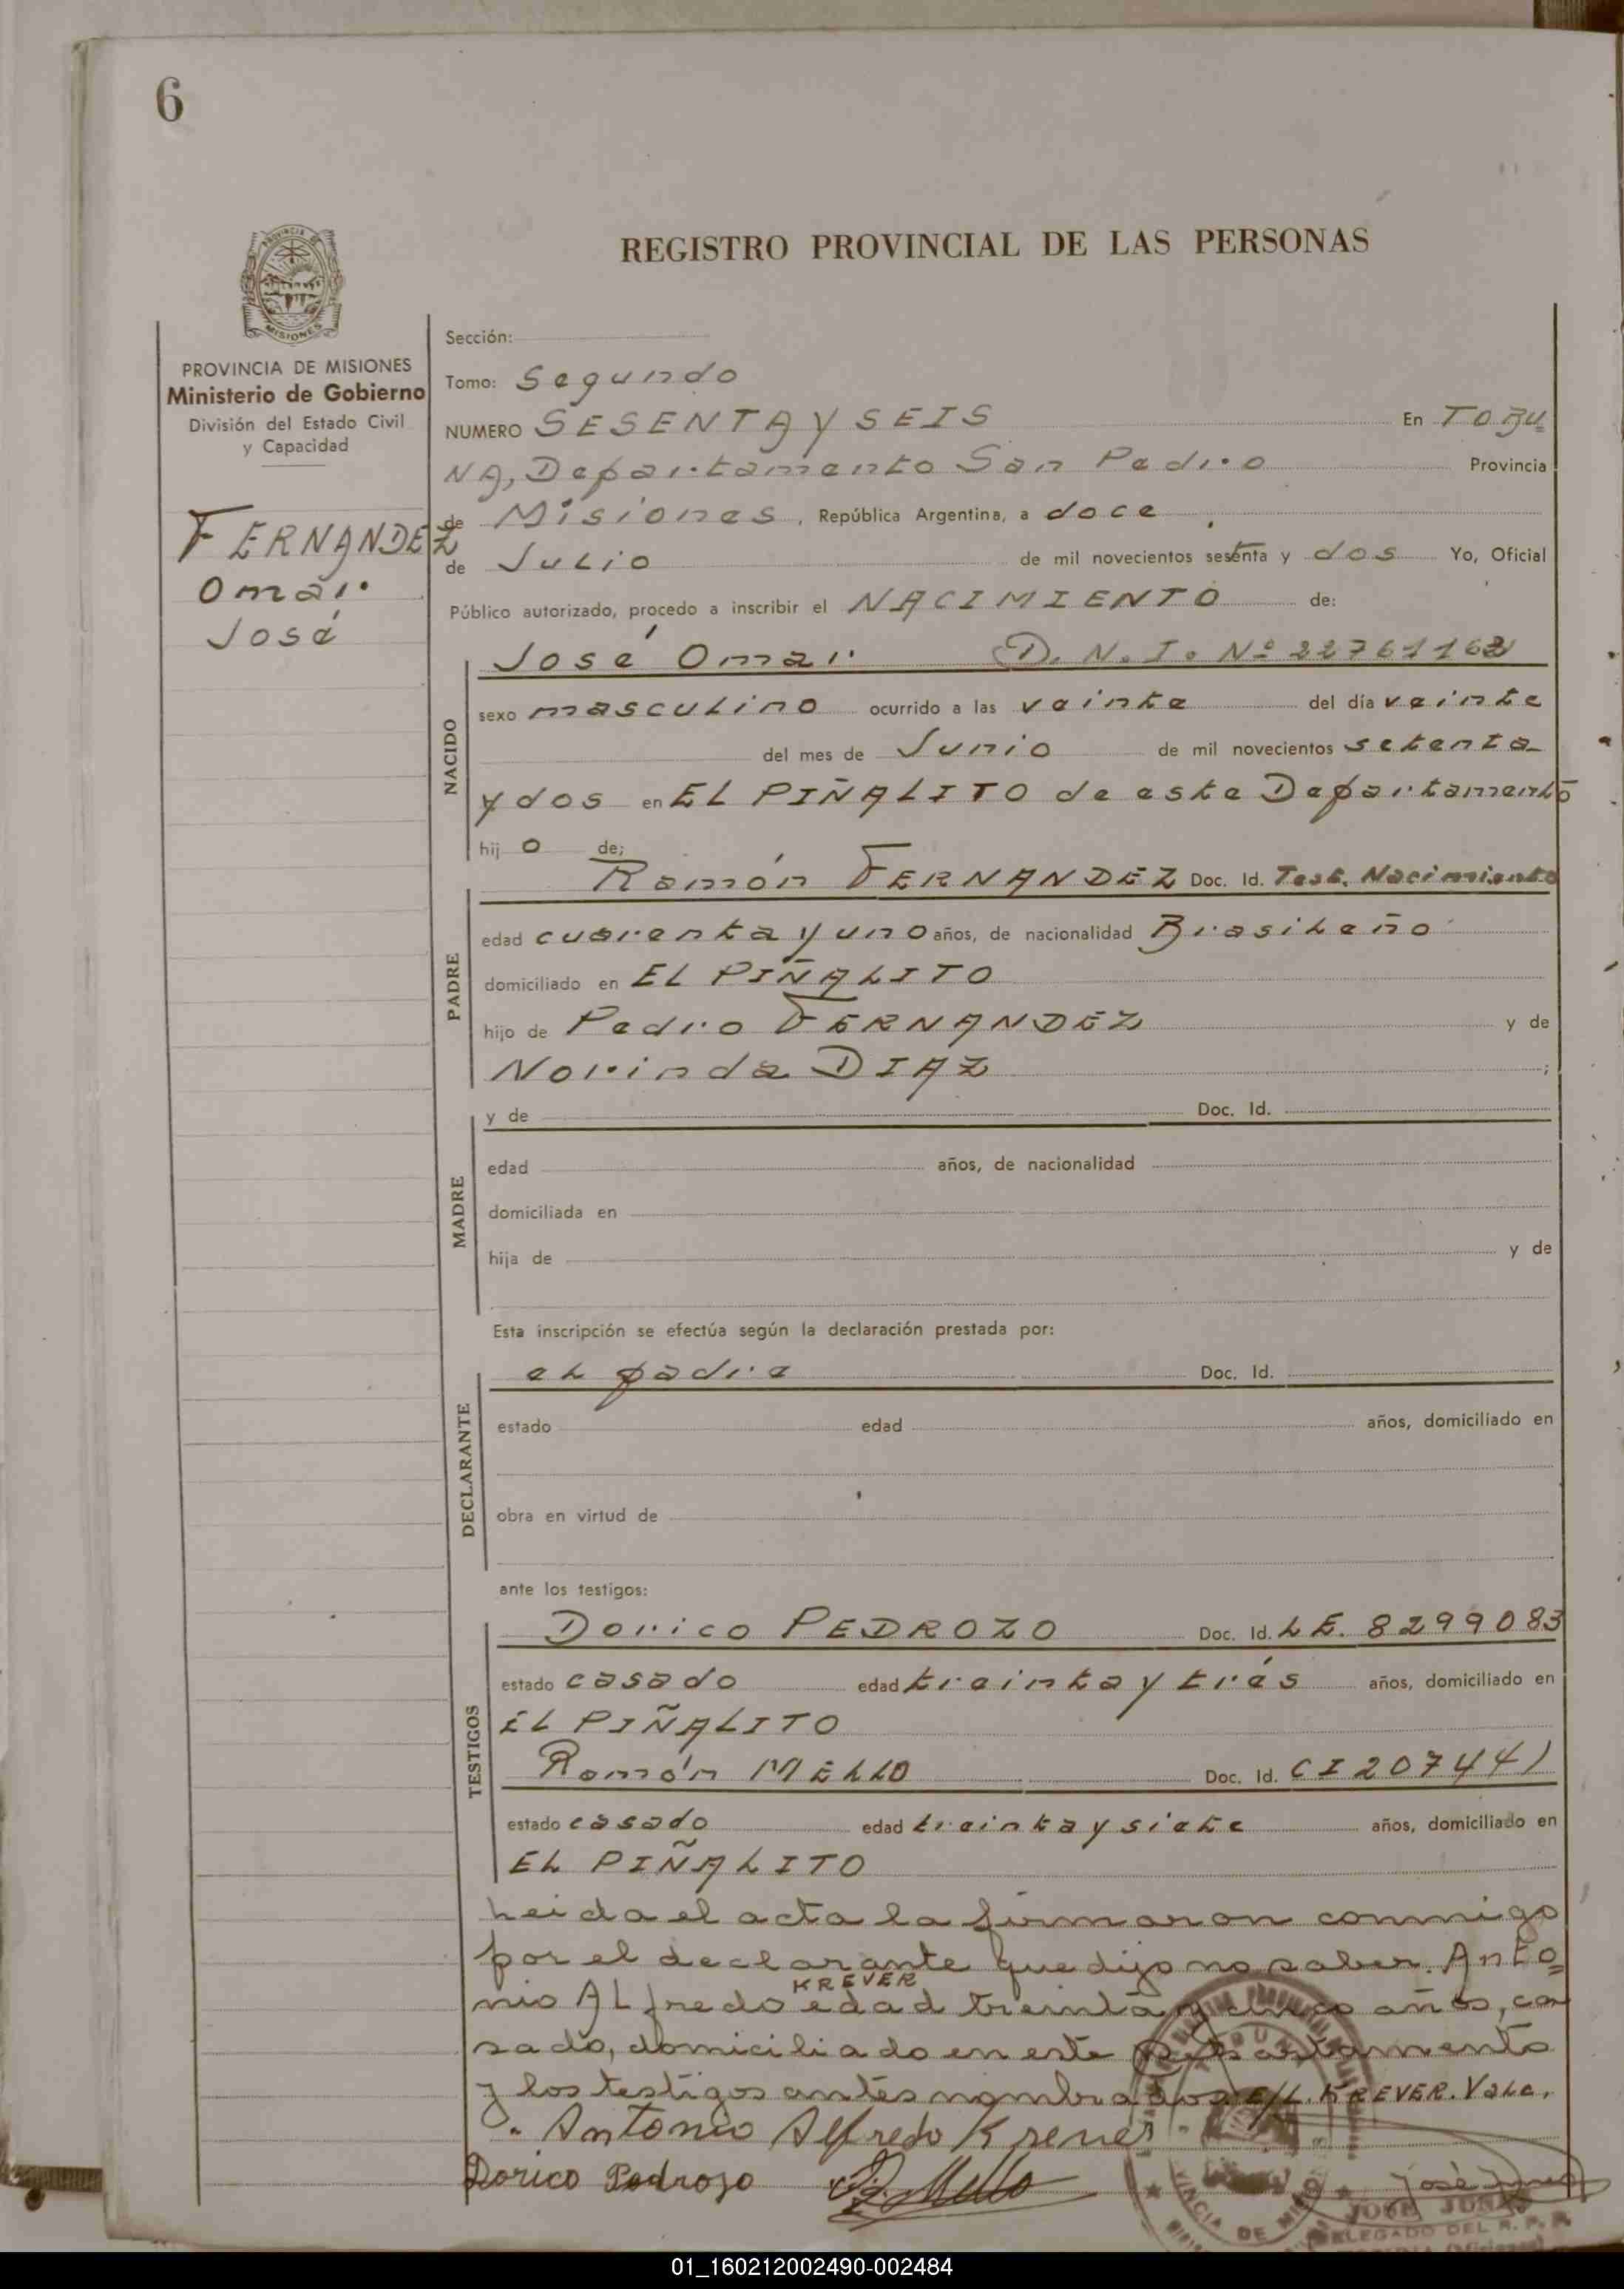 6
REGISTRO PROVINCIAL DE LAS PERSONAS
PROVINCIA DE
MISIONES
PROVINCIA DE MISIONES
Ministerio de Gobierno
División del Estado Civil
y Capacidad
FERNANDEZ
Omar
José
Sección:
Tomo: Segundo
NUMERO SESENTA Y SEIS En TOBU=
NA, Departamento San Pedro Provincia
de Misiones, República Argentina, a doce
de Julio de mil novecientos sesenta y dos Yo, Oficial
Público autorizado, procedo a inscribir el NACIMIENTO de:
José Omar D. N. I. Nº 22761162
NACIDO
sexo masculino ocurrido a las veinte del día veinte
del mes de Junio de mil novecientos setenta
y dos en EL PIÑALITO de este Departamento
hij o de;
Ramón FERNANDEZ Doc. Id. Test. Nacimiento
PADRE
edad cuarenta y uno años, de nacionalidad Brasileño
domiciliado en EL PIÑALITO
hijo de Pedro FERNANDEZ y de
Norinda DIAZ ;
y de Doc. Id.
MADRE
edad años, de nacionalidad
domiciliada en
hija de y de
Esta inscripción se efectúa según la declaración prestada por:
el padre Doc. Id.
DECLARANTE
estado edad años, domiciliado en
obra en virtud de
ante los testigos:
Dorico PEDROZO Doc. Id. LE. 8299083
TESTIGOS
estado casado edad treinta y trés años, domiciliado en
EL PIÑALITO
Ramón MELLO Doc. Id. CI 207441
estado casado edad treinta y siete años, domiciliado en
EL PIÑALITO
Leida el acta la firmaron conmigo
por el declarante que dijo no saber. Anto=
KREVER
nio ALfredo edad treinta y cinco años, ca
sado, domiciliado en este Departamento
y los testigos antes nombrados. E/L. KREVER. Vale.
Antonio Alfredo Krever
Dorico Pedrozo Mello José
JOSE
DELEGADO DEL R. P. P.
(Misiones)
PROVINCIA DE
01_160212002490-002484